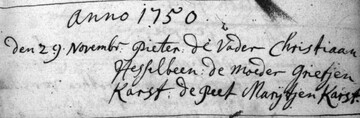 Anno 1750.
den 29. Novembr: Pieter. de Vader Christiaan
Hesselbeen: de moeder Grietjen
Karst. de Peet Marijtjen Karst.